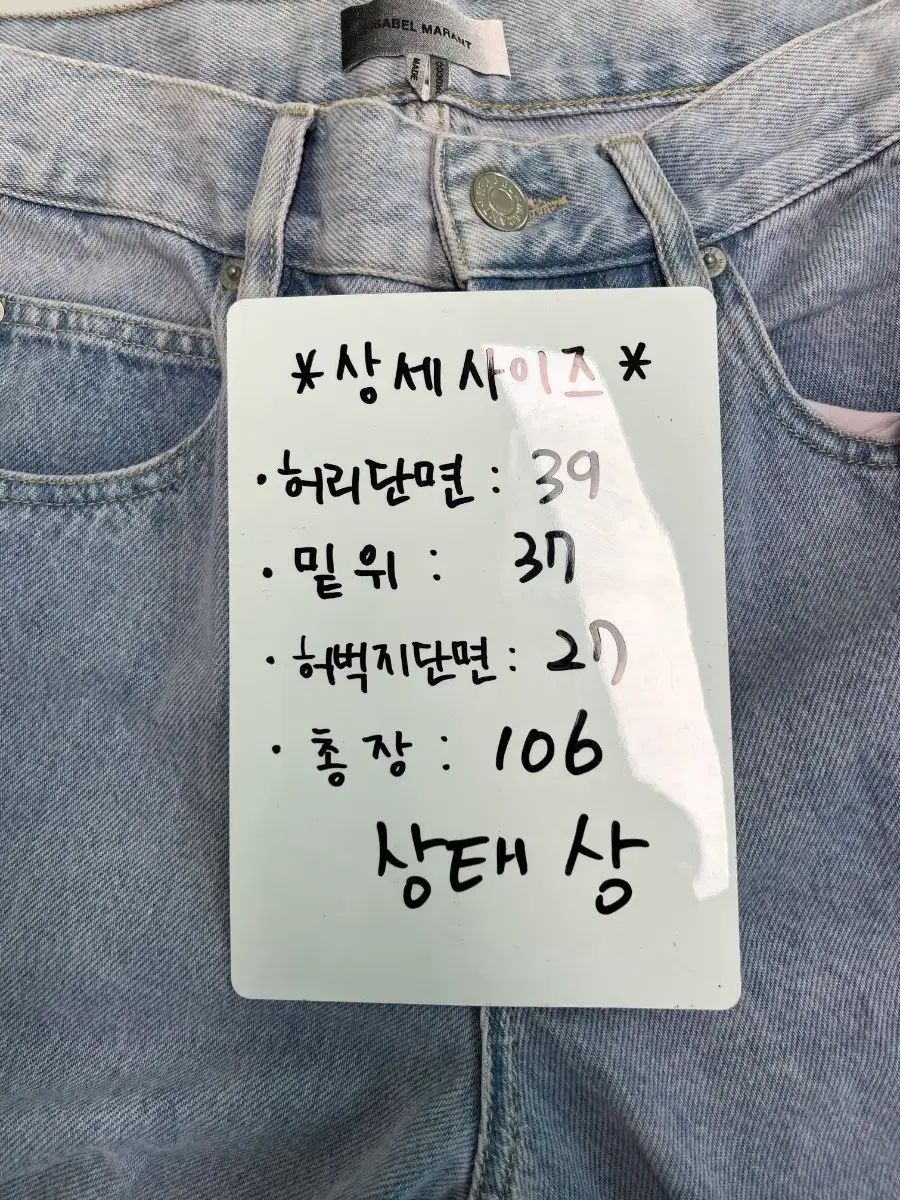 ISABEL MARANT
MADE
*상세사이즈*
· 허리단면 : 39
· 밑위 : 37
· 허벅지단면 : 27
· 총장 : 106
상태 상